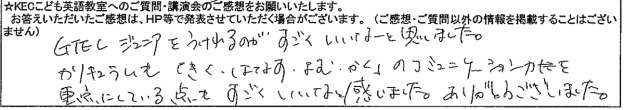 ★KECこども英語教室へのご質問・講演会のご感想をお願いいたします。
お答えいただいたご感想は、HP等で発表させていただく場合がございます。（ご感想・ご質問以外の情報を掲載することはござい
ません）
GTECジュニアをうけれるのが すごく いいなーと思いました。
カリキュラムも「きく・はなす・よむ・かく」のコミュニケーション力を
重点にしている点も すごく いいなと感じました。ありがとうございました。